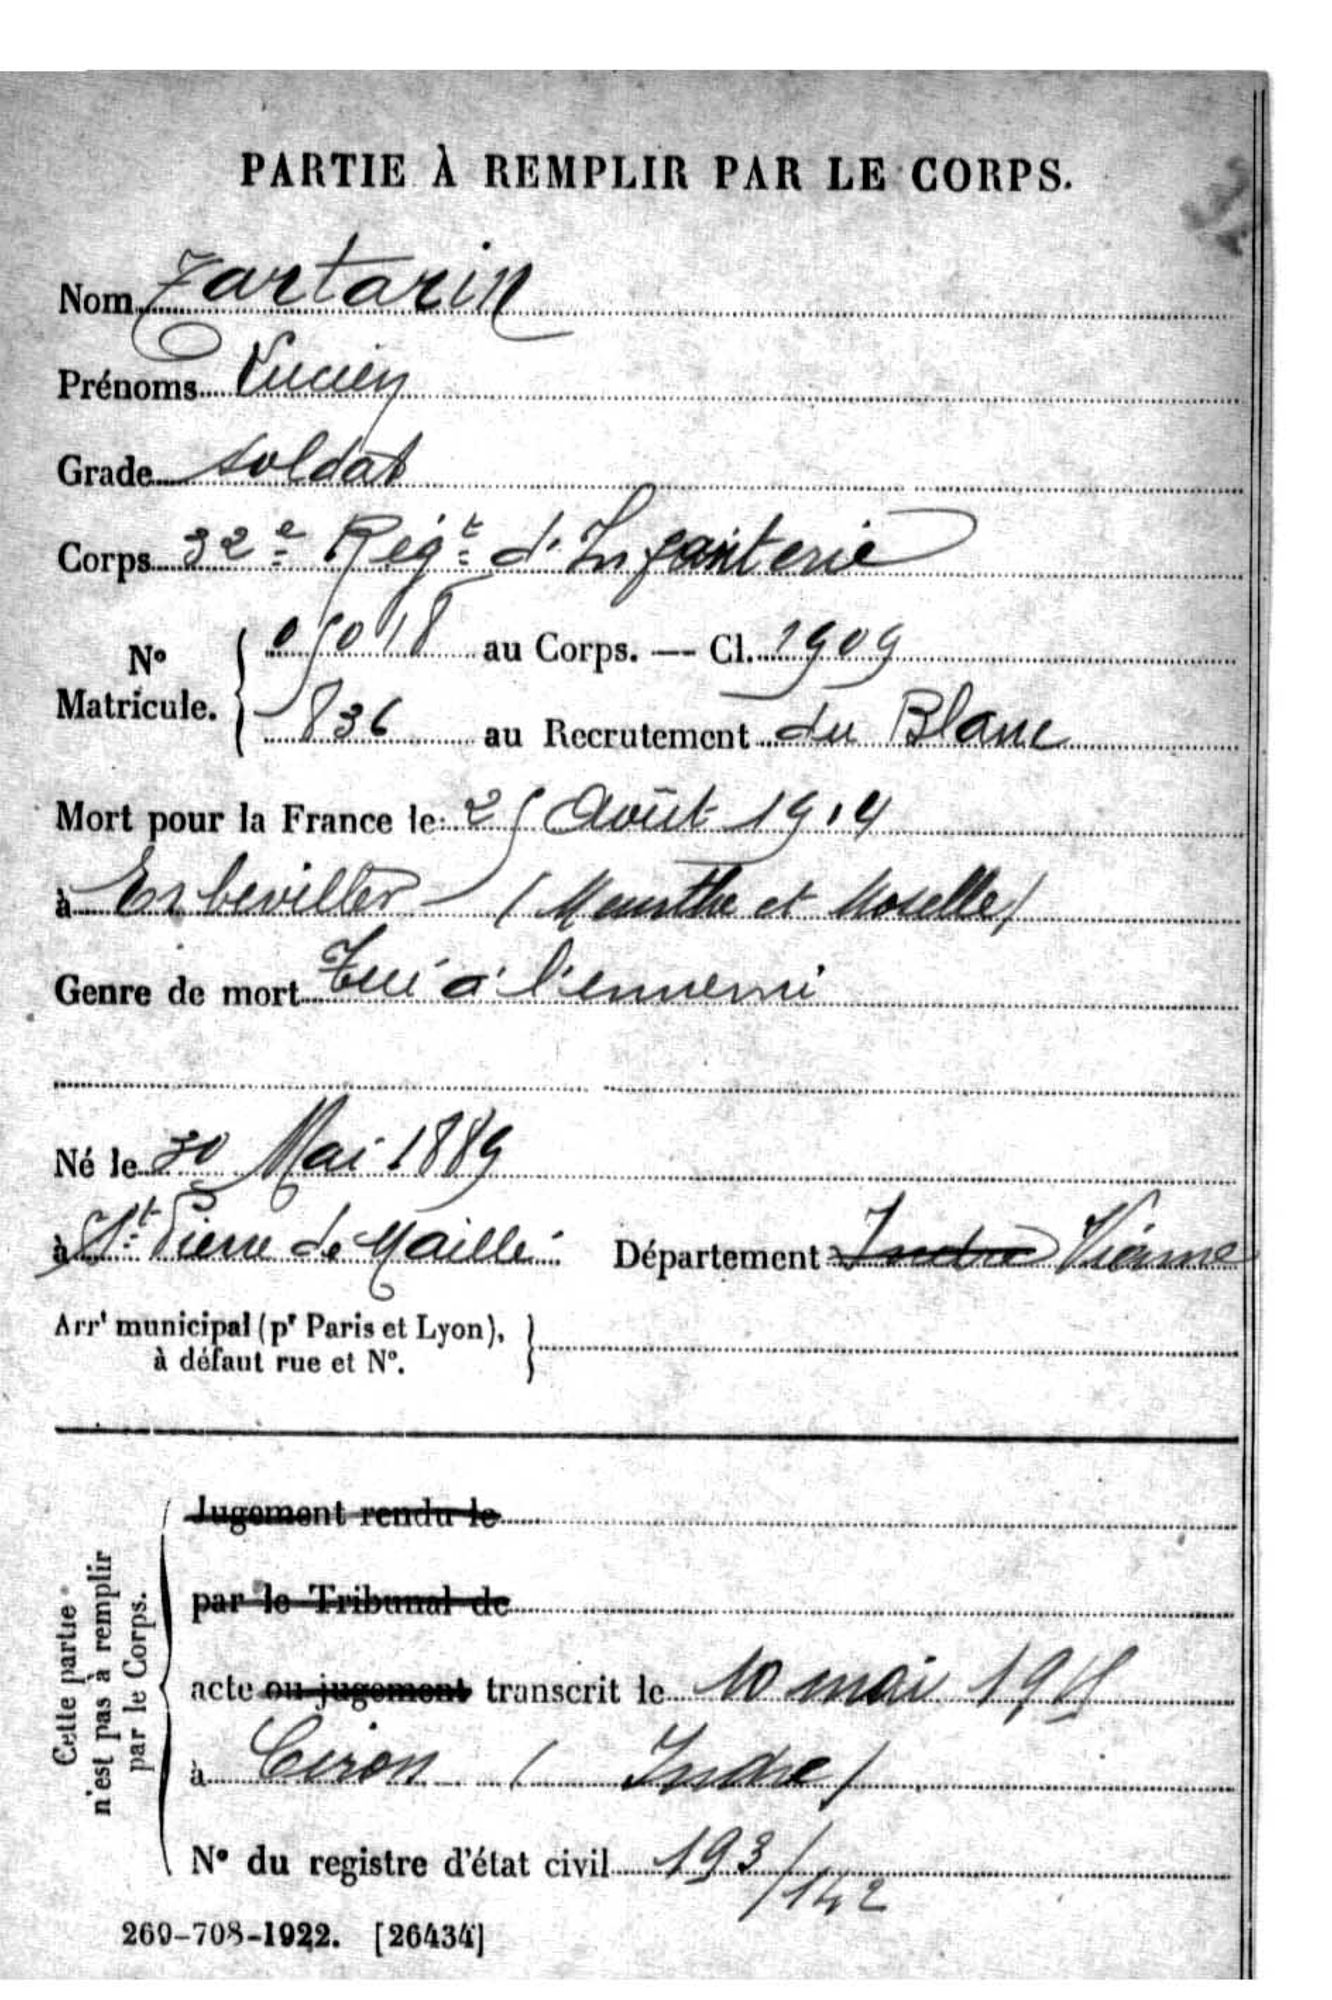 PARTIE À REMPLIR PAR LE CORPS.
Nom Tartarin
Prénoms Lucien
Grade soldat
Corps 32e Régt d'Infanterie
N° Matricule. 05018 au Corps. — Cl. 1909
836 au Recrutement du Blanc
Mort pour la France le 25 Août 1914
à Erbeviller (Meurthe et Moselle)
Genre de mort Tué à l'ennemi
Né le 30 Mai 1889
à St Pierre de Maillé Département Indre Vienne
Arrt municipal (pr Paris et Lyon),
à défaut rue et N°.
Cette partie n'est pas à remplir par le Corps.
Jugement rendu le
par le Tribunal de
acte ou jugement transcrit le 10 mai
à Ciron (Indre)
N° du registre d'état civil 193/142
269-708-1922. [26434]